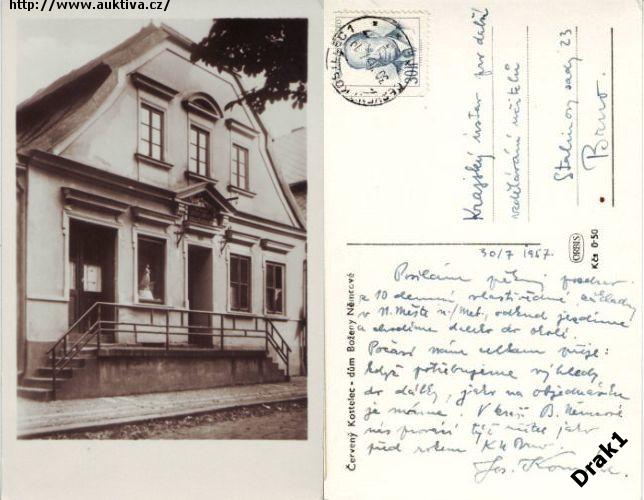 http://www.auktiva.cz/
30 h
Krajský ústav pro další
vzdělávání učitelů
Stalinovy sady 23
Brno.
ORBIS
Kčs 0·50
Červený Kostelec - dům Boženy Němcové
30/7 1957.
Posíláme pěkný pozdrav
z 10 denní vlastivědné
v N. Městě n./Met., odkud jezdíme
a chodíme daleko do okolí.
Počasí nám celkem přeje:
když potřebujeme výhledy
do dálky, jako na objednávku
je máme. V kraji B. Němcové
nás provází týž učitel jako
před rokem KÚ Brno.
Jos.
Drak1